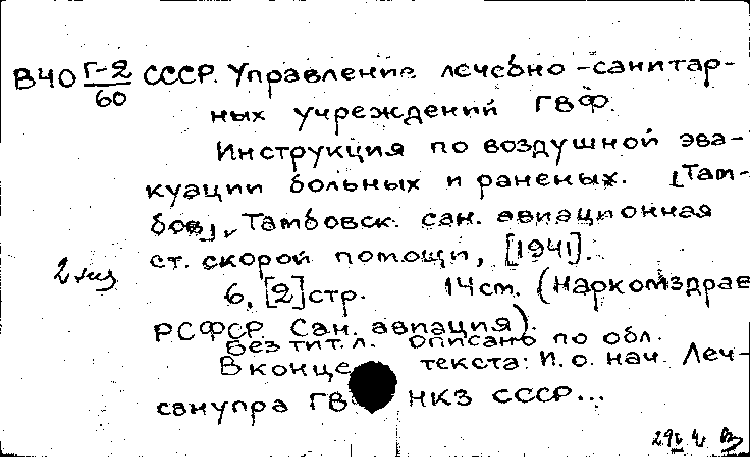 В40 Г-2/60 СССР. Управление лечебно-санитар-
ных учреждений ГВФ.
Инструкция по воздушной эва-
куации больных и раненых. [Там-
бов], Тамбовск. сан. авиационная
ст. скорой помощи, [1941].
2 экз
6, [2] стр. 14 см. (Наркомздрав
РСФСР. Сан. авиация).
Без тит. л. Описано по обл.
В конце текста: И. о. нач. Леч-
санупра ГВФ НКЗ СССР...